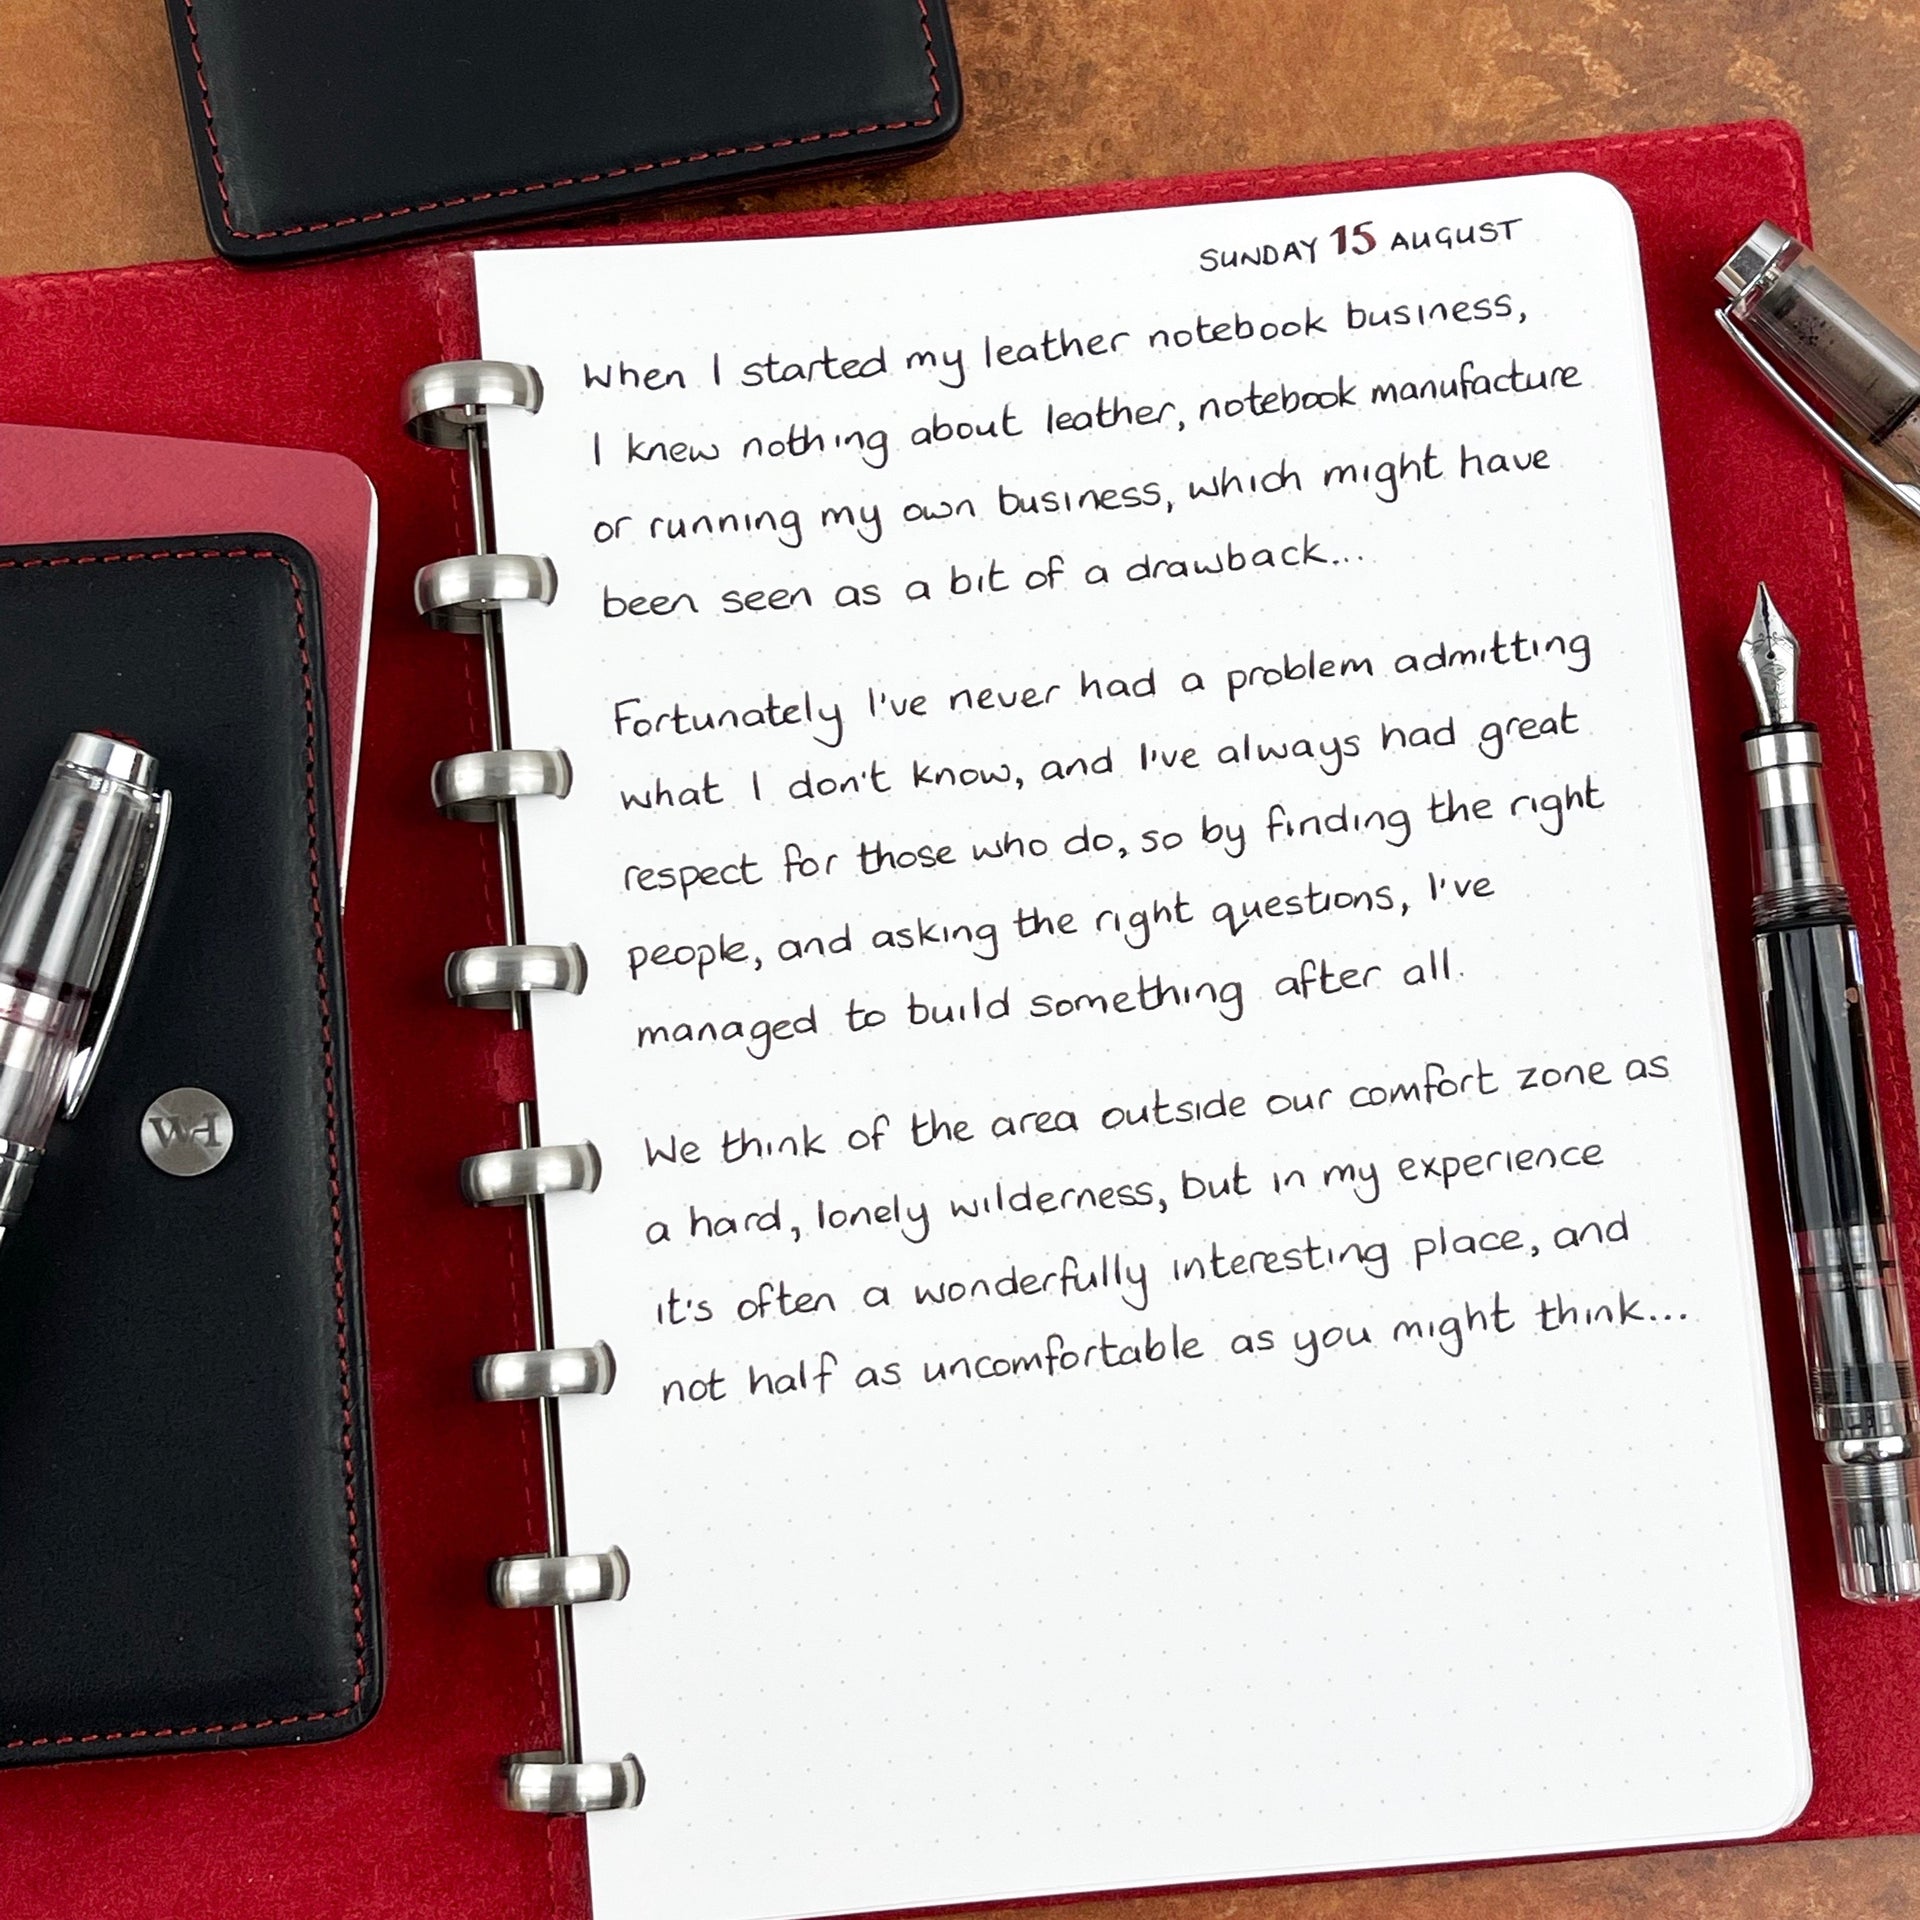 SUNDAY 15 AUGUST
When I started my leather notebook business,
I knew nothing about leather, notebook manufacture
or running my own business, which might have
been seen as a bit of a drawback...
Fortunately I've never had a problem admitting
what I don't know, and I've always had great
respect for those who do, so by finding the right
people, and asking the right questions, I've
managed to build something after all.
We think of the area outside our comfort zone as
a hard, lonely wilderness, but in my experience
it's often a wonderfully interesting place, and
not half as uncomfortable as you might think...